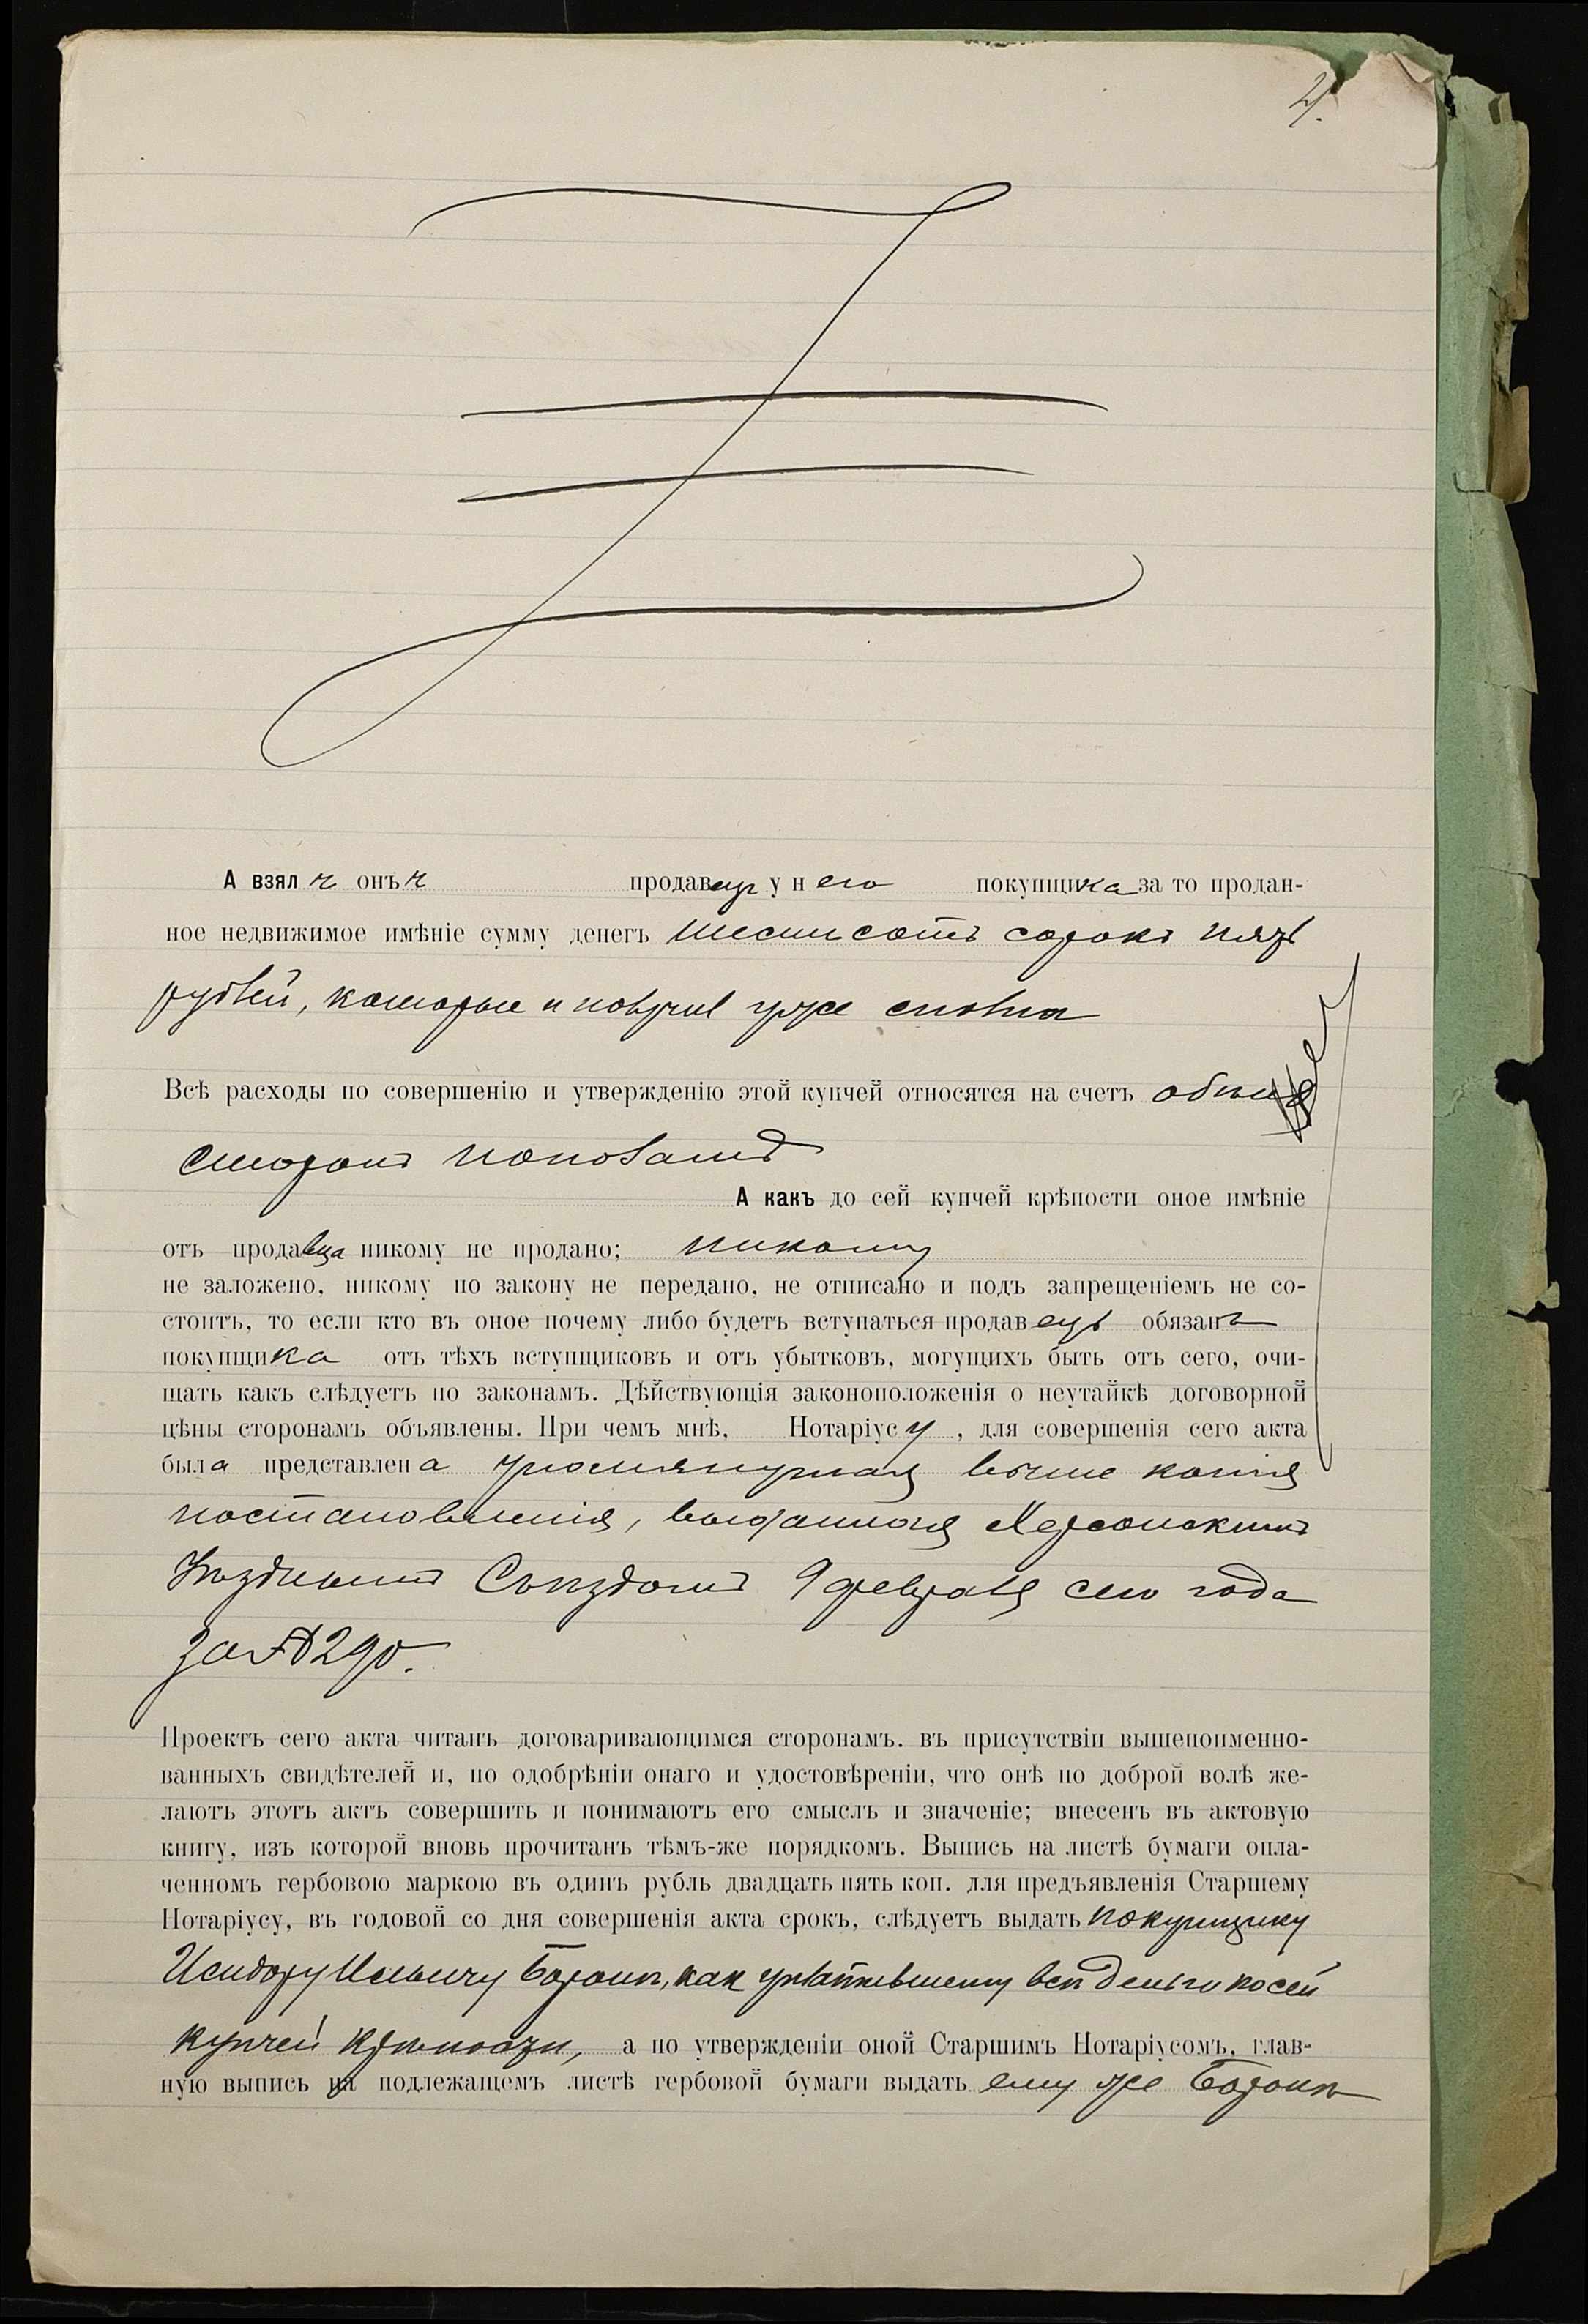 2.
А взялъ онъ продавецъ у него покупщика за то продан-
ное недвижимое имѣніе сумму денегъ шестьсотъ сорокъ пять
рублей, которые и получилъ уже сполна
Всѣ расходы по совершенію и утвержденію этой купчей относятся на счетъ обѣихъ
сторонъ пополамъ
А какъ до сей купчей крѣпости оное имѣніе
отъ продавца никому не продано; никому
не заложено, никому по закону не передано, не отписано и подъ запрещеніемъ не со-
стоитъ, то если кто въ оное почему либо будетъ вступаться продавецъ обязанъ
покупщика отъ тѣхъ вступщиковъ и отъ убытковъ, могущихъ быть отъ сего, очи-
щать какъ слѣдуетъ по законамъ. Дѣйствующія законоположенія о неутайкѣ договорной
цѣны сторонамъ объявлены. При чемъ мнѣ, Нотаріусу, для совершенія сего акта
была представлена упомянутая выше копія
постановленія, выданная Херсонскимъ
Уѣзднымъ Съѣздомъ 9 февраля сего года
за № 290.
Проектъ сего акта читанъ договаривающимся сторонамъ. въ присутствіи вышепоименно-
ванныхъ свидѣтелей и, по одобрѣніи онаго и удостовѣреніи, что онѣ по доброй волѣ же-
лаютъ этотъ актъ совершить и понимаютъ его смыслъ и значеніе; внесенъ въ актовую
книгу, изъ которой вновь прочитанъ тѣмъ-же порядкомъ. Выпись на листѣ бумаги опла-
ченномъ гербовою маркою въ одинъ рубль двадцать пять коп. для предъявленія Старшему
Нотаріусу, въ годовой со дня совершенія акта срокъ, слѣдуетъ выдать покупщику
Исидору Ильичу как уплатившему всѣ деньги по сей
купчей крѣпости, а по утвержденіи оной Старшимъ Нотаріусомъ, глав-
ную выпись на подлежащемъ листѣ гербовой бумаги выдать ему же